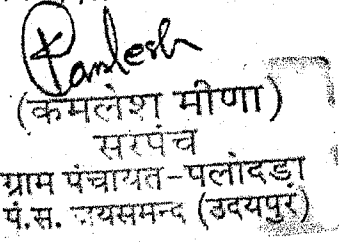 Kamlesh
(कमलेश मीणा)
सरपंच
ग्राम पंचायत-पलोदड़ा
पं.स. जयसमन्द (उदयपुर)